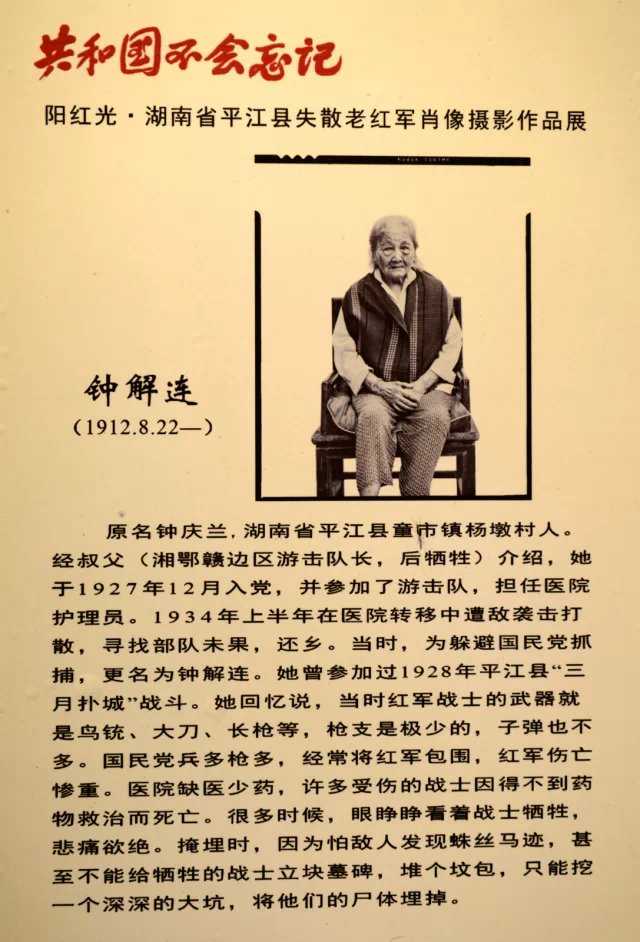 共和国不会忘记
阳红光·湖南省平江县失散老红军肖像摄影作品展
钟解连
（1912.8.22—）
原名钟庆兰，湖南省平江县童市镇杨墩村人。
经叔父（湘鄂赣边区游击队长，后牺牲）介绍，她
于1927年12月入党，并参加了游击队，担任医院
护理员。1934年上半年在医院转移中遭敌袭击打
散，寻找部队未果，还乡。当时，为躲避国民党抓
捕，更名为钟解连。她曾参加过1928年平江县“三
月扑城”战斗。她回忆说，当时红军战士的武器就
是鸟铳、大刀、长枪等，枪支是极少的，子弹也不
多。国民党兵多枪多，经常将红军包围，红军伤亡
惨重。医院缺医少药，许多受伤的战士因得不到药
物救治而死亡。很多时候，眼睁睁看着战士牺牲，
悲痛欲绝。掩埋时，因为怕敌人发现蛛丝马迹，甚
至不能给牺牲的战士立块墓碑，堆个坟包，只能挖
一个深深的大坑，将他们的尸体埋掉。